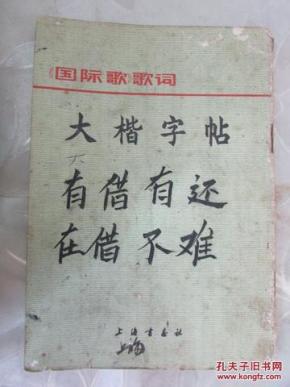 《国际歌》歌词
大楷字帖
有借有还
在借不难
上海书画社
上海
孔夫子旧书网
www.kongfz.com